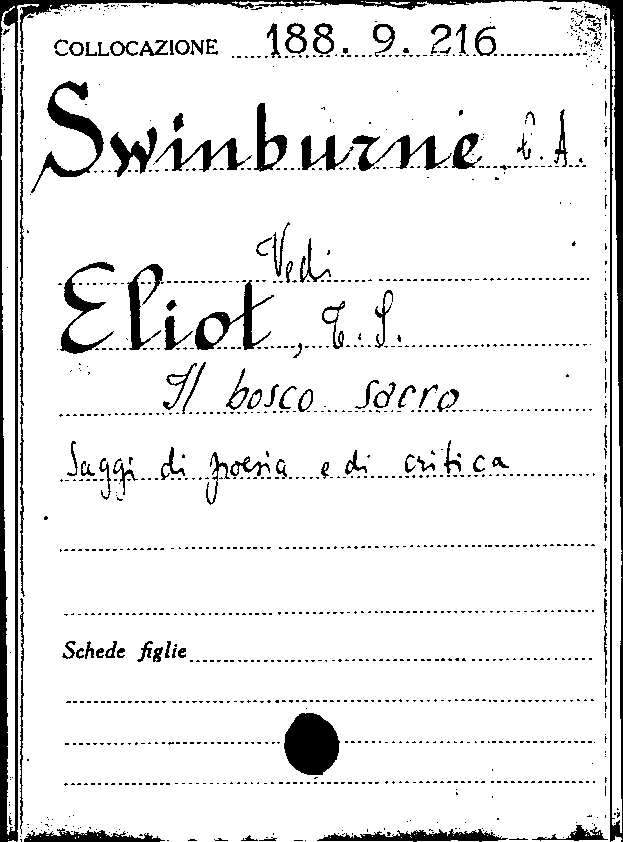 COLLOCAZIONE 188. 9. 216
Swinburne C. A.
Vedi
Eliot, T. S.
Il bosco sacro
Saggi di poesia e di critica
Schede figlie